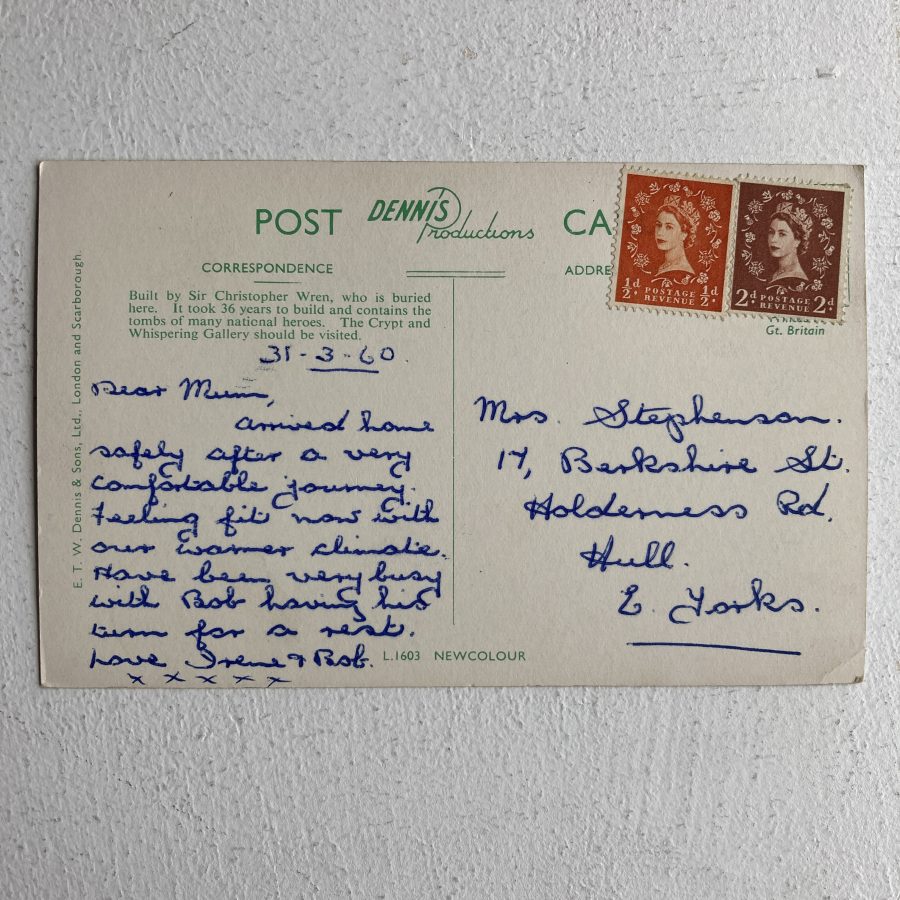 POST DENNIS Productions CA
CORRESPONDENCE
ADDRE
Built by Sir Christopher Wren, who is buried
here. It took 36 years to build and contains the
tombs of many national heroes. The Crypt and
Whispering Gallery should be visited.
31-3-60.
Dear Mum,
arrived home
safely after a very
comfortable journey.
Feeling fit now with
our warmer climate.
Have been very busy
with Bob having his
turn for a rest.
Love Irene & Bob.
x x x x x
L.1603 NEWCOLOUR
E. T. W. Dennis & Sons, Ltd., London and Scarborough
½d ½d
POSTAGE
REVENUE
2d 2d
POSTAGE
REVENUE
Gt. Britain
Mrs. Stephenson.
17, Berkshire St.
Holderness Rd.
Hull.
E. Yorks.